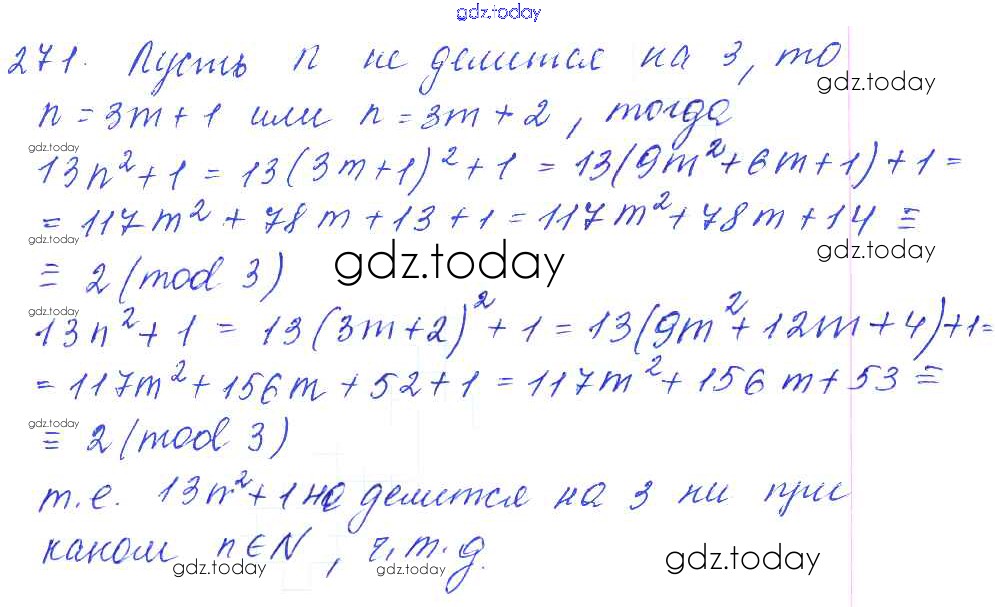 gdz.today
271. Пусть n не делится на 3, то
gdz.today
n = 3m + 1 или n = 3m + 2, тогда
gdz.today
13n² + 1 = 13(3m + 1)² + 1 = 13(9m² + 6m + 1) + 1 =
= 117m² + 78m + 13 + 1 = 117m² + 78m + 14 ≡
gdz.today
gdz.today
≡ 2 (mod 3)
gdz.today
gdz.today
13n² + 1 = 13(3m + 2)² + 1 = 13(9m² + 12m + 4) + 1 =
= 117m² + 156m + 52 + 1 = 117m² + 156m + 53 ≡
gdz.today
≡ 2 (mod 3)
т.е. 13n² + 1 не делится на 3 ни при
каком n ∈ N, ч.т.д.
gdz.today
gdz.today
gdz.today